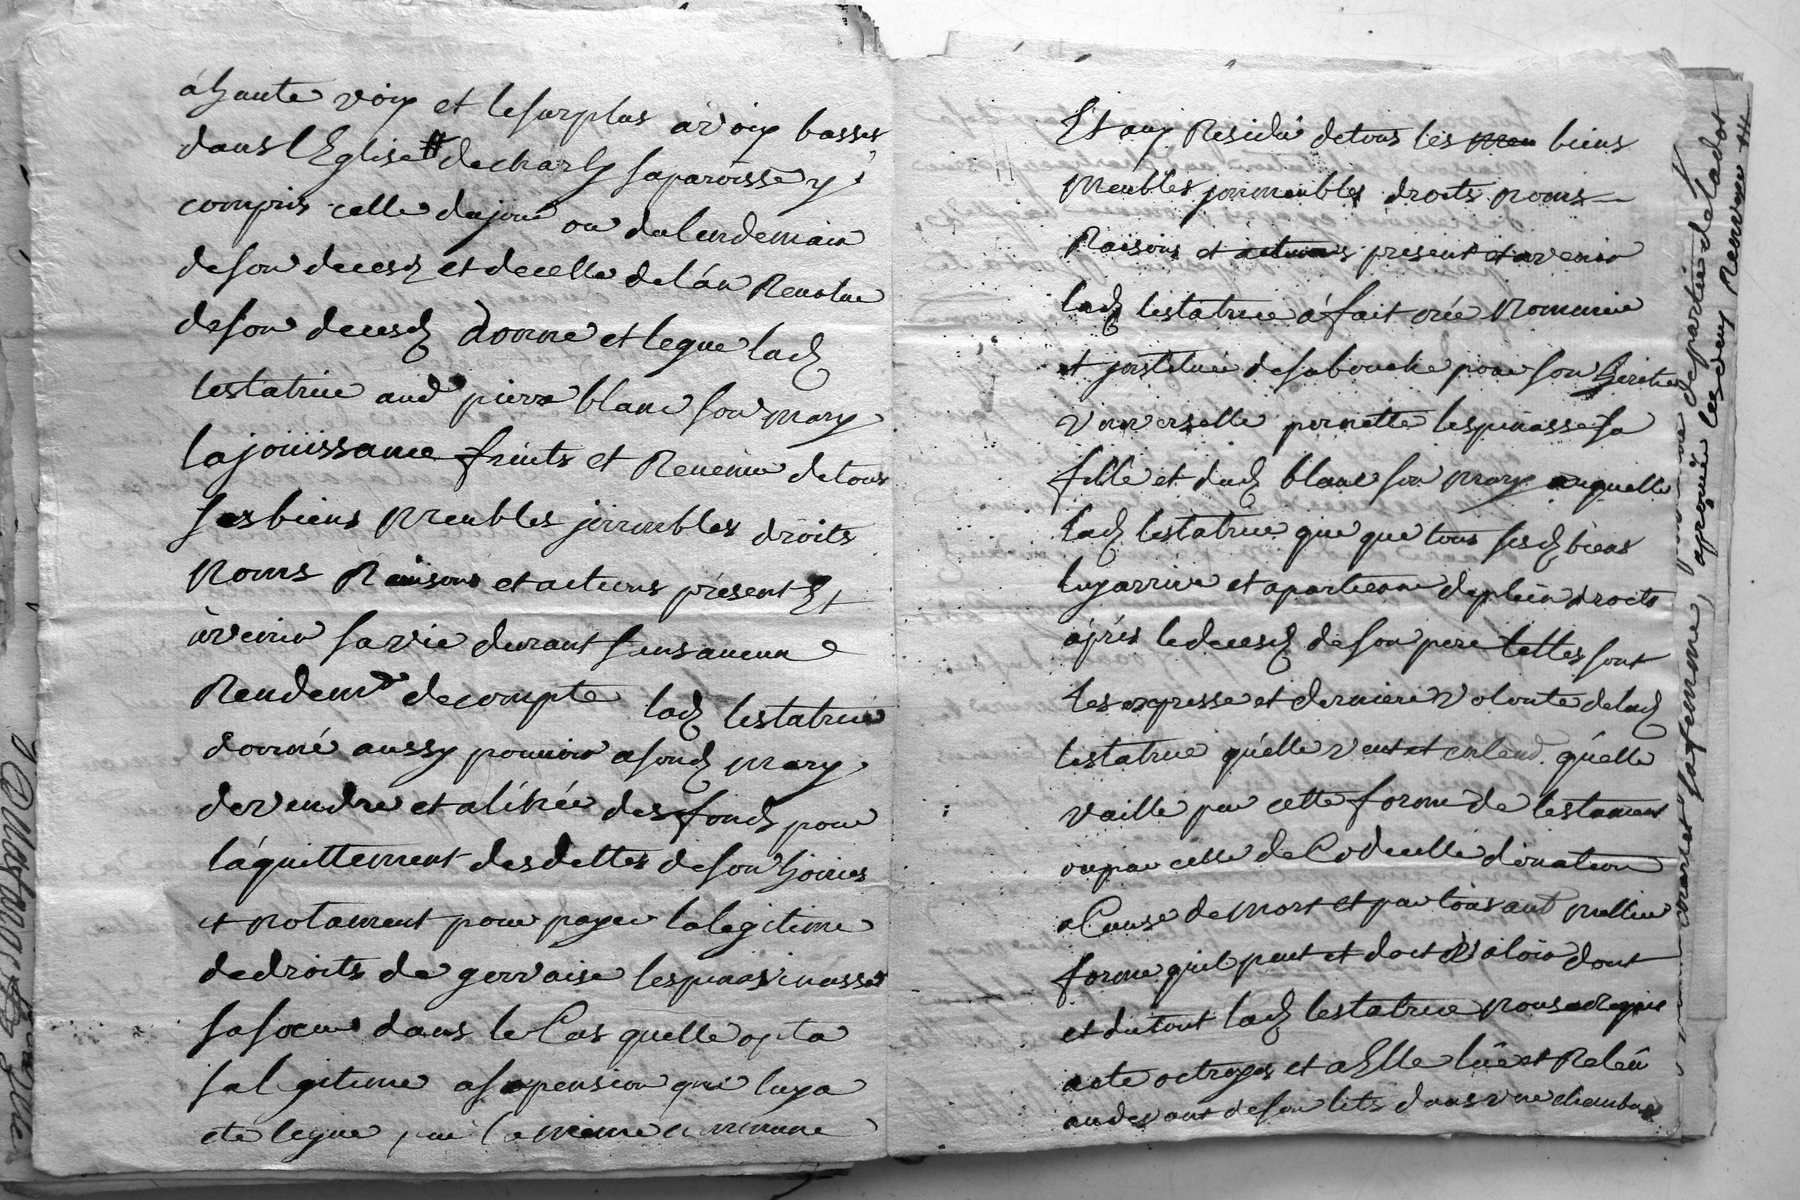 á haute voix et le surplus a voix basses
dans l'Eglise # de charly sa paroisse y
compris celle du jour ou du lendemain
de son decesd et de celle de l'án Revolue
de son decesd donne et legue lad
testatrice aud pierre blanc son mary
la joüissance fruits et Revenue de tous
ses biens Meubles jmmeubles droits
Noms Raisons et actions présent Et
àvenir sa vie durant sans aucune
Rendemt de compte lad testatrice
donne aussy pouvoir a sond mary
de vendre et aliéné des fond pour
l'áquittement des dettes de son hoiries
et notament pour payer la legitime
de droits de gervaise lespinasse
sa soeur dans le Cas quelle opta
sa l gitime a sa pension qui luy a
ete legue par le meme
Et aux Residû de tous les meu biens
Meubles jmmeubles droits noms
Raisons et actions present et avenir
lad testatrice á fait créé Nommée
et jnstituée de sa bouche pour son heritier
universelle pernette lespinasse sa
fille et dud blanc son mary auquelle
lad testatrice que que tous sesd biens
luy arrive et apartienne de plein droits
aprés le decesd de son pere telles sont
les expresse et derniere Volonte de lad
testatrice qu'elle veut et entend qu'elle
vaille par cette forme de testament
ou par celle de Codicille donation
a Cause de mort et par tous aut meilleur
forme qu'il peut et doit Valoir dont
et du tout lad testatrice nous a Requis
acte octroyés et a Elle lûe et Relëu
au devant de son lits dans une chambre
sa femme, aprouvée les deux Renvoye
de partie de la dot